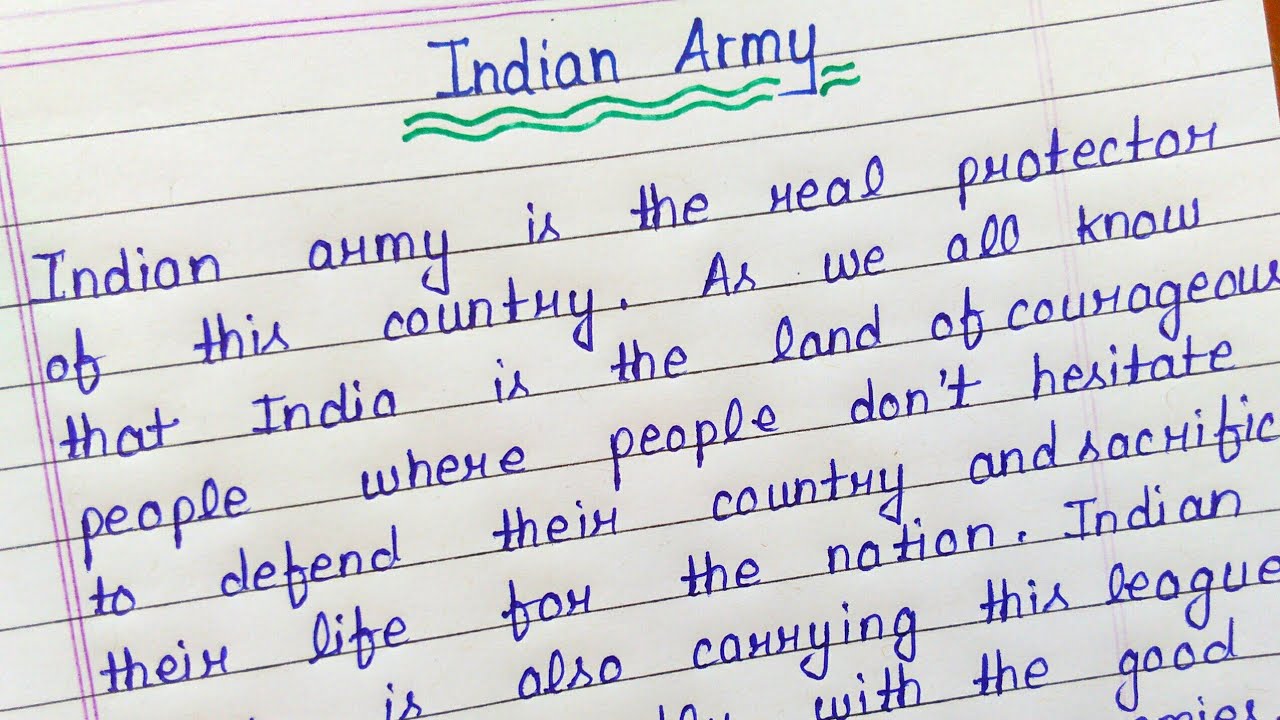 Indian Army
Indian army is the real protector
of this country. As we all know
that India is the land of courageous
people where people don't hesitate
to defend their country and sacrific
their life for the nation. Indian
is also carrying this league
with the good